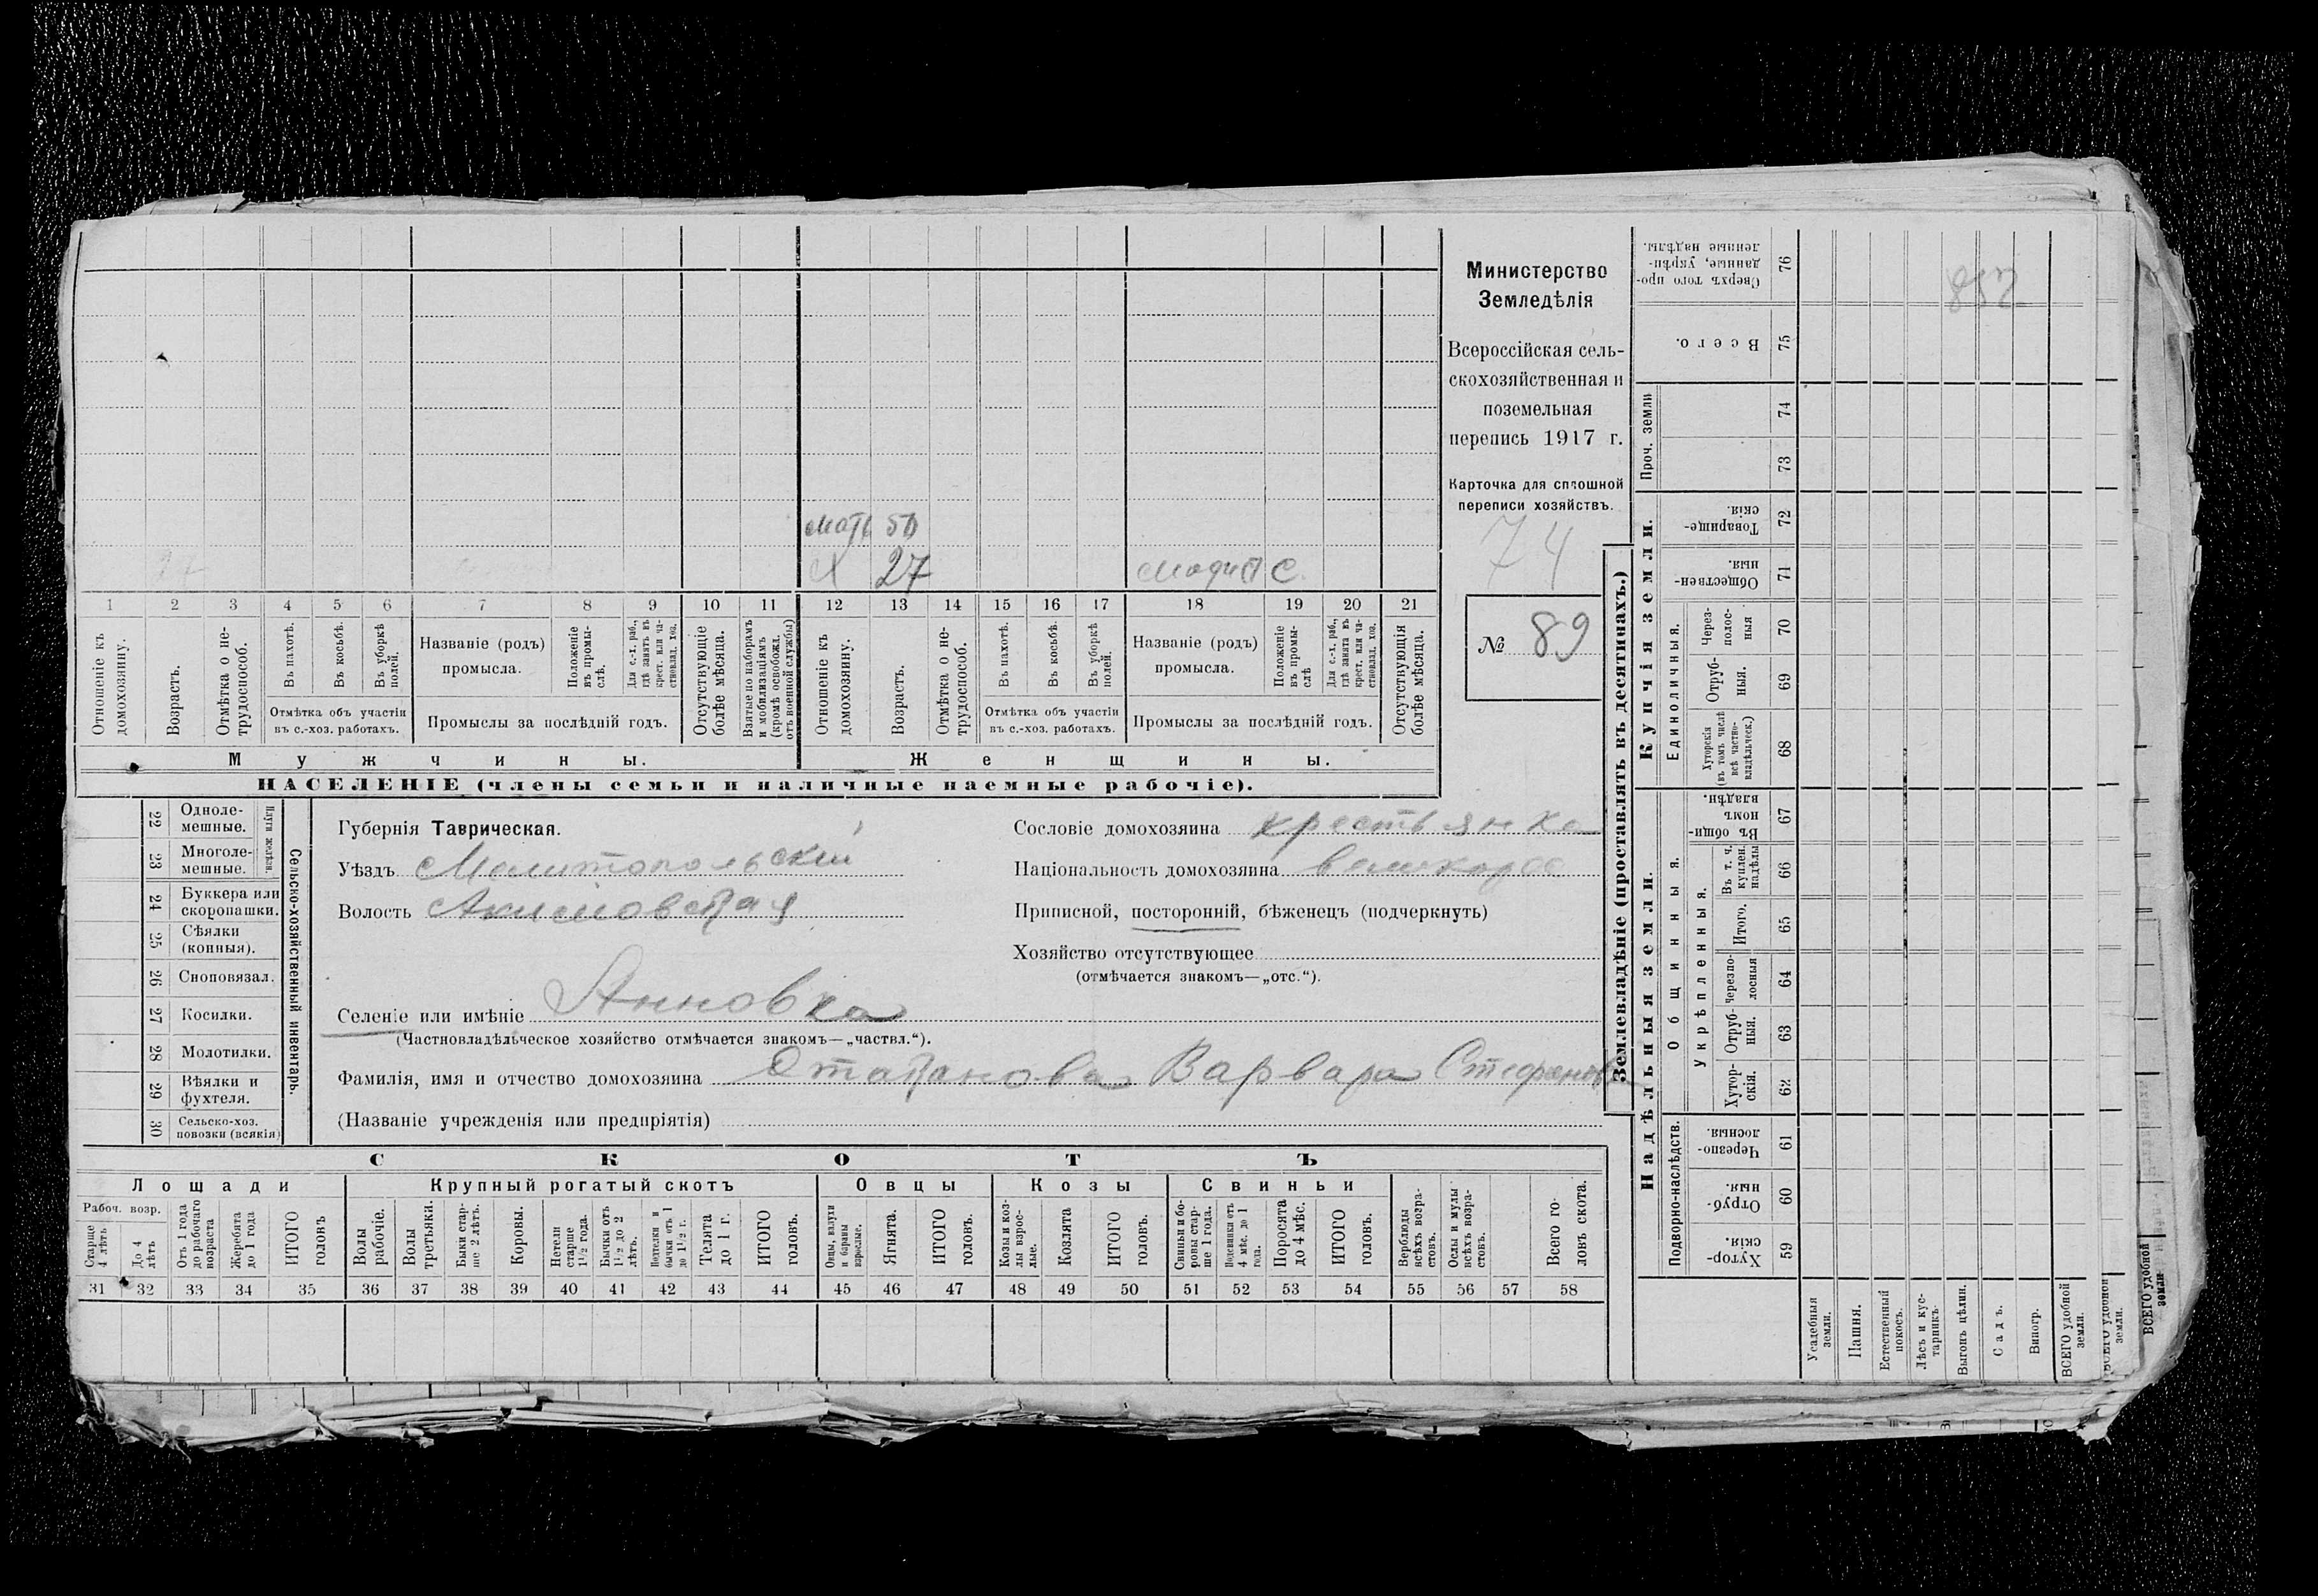 мать 50
Х 27 модист С.
1 2 3 4 5 6 7 8 9 10 11 12 13 14 15 16 17 18 19 20 21
Отношеніе къ домохозяину.
Возрастъ.
Отмѣтка о не-трудоспособ.
Въ пахотѣ.
Въ косьбѣ.
Въ уборкѣ полей.
Отмѣтка объ участіи
въ с.-хоз. работахъ.
Названіе (родъ)
промысла.
Положеніе въ промы-слѣ.
Для с.-х. раб., гдѣ занятъ въ крест. или ча-стновлад. хоз.
Промыслы за послѣдній годъ.
Отсутствующіе болѣе мѣсяца.
Взятые по наборамъ и мобилизаціямъ (кромѣ освобожд. отъ военной службы)
Отношеніе къ домохозяину.
Возрастъ.
Отмѣтка о не-трудоспособ.
Въ пахотѣ.
Въ косьбѣ.
Въ уборкѣ полей.
Отмѣтка объ участіи
въ с.-хоз. работахъ.
Названіе (родъ)
промысла.
Положеніе въ промы-слѣ
Для с.-х. раб., гдѣ занята въ крест. или ча-стновлад. хоз.
Промыслы за послѣдній годъ.
Отсутствующія болѣе мѣсяца.
Мужчины.
Женщины.
НАСЕЛЕНІЕ (члены семьи и наличные наемные рабочіе).
Министерство
Земледѣлія
Всероссійская сель-
скохозяйственная и
поземельная
перепись 1917 г.
Карточка для сплошной
переписи хозяйствъ.
74
№ 89
Сельско-хозяйственный инвентарь.
Плуги желѣзн.
22 Одноле-
мешные.
23 Многоле-
мешные.
24 Буккера или
скоропашки.
25 Сѣялки
(конныя).
26 Сноповязал.
27 Косилки.
28 Молотилки.
29 Вѣялки и
фухтеля.
30 Сельско-хоз.
повозки (всякія)
Губернія Таврическая.
Уѣздъ Мелитопольскій
Волость Акимовская
Селеніе или имѣніе Анновка
(Частновладѣльческое хозяйство отмѣчается знакомъ—„частвл.“).
Фамилія, имя и отчество домохозяина Варвара Стефановна
(Названіе учрежденія или предпріятія)
Сословіе домохозяина крестьянка
Національность домохозяина великорос
Приписной, посторонній, бѣженецъ (подчеркнуть)
Хозяйство отсутствующее
(отмѣчается знакомъ—„отс.“).
СКОТЪ
Лошади
Крупный рогатый скотъ
Овцы
Козы
Свиньи
Рабоч. возр.
Старше 4 лѣтъ
До 4 лѣтъ
Отъ 1 года до рабочаго возраста
Жеребята до 1 года
ИТОГО головъ
Волы рабочіе.
Волы третьяки.
Быки стар-ше 2 лѣтъ.
Коровы.
Нетели старше 1½ года.
Бычки отъ 1½ до 2 лѣтъ.
Подтелки и бычки отъ 1 до 1½ г.
Телята до 1 г.
ИТОГО головъ.
Овцы, валухи и бараны взрослые.
Ягнята.
ИТОГО головъ.
Козы и коз-лы взрос-лые.
Козлята
ИТОГО головъ.
Свиньи и бо-ровы стар-ше 1 года.
Подсвинки отъ 4 мѣс. до 1 года.
Поросята до 4 мѣс.
ИТОГО головъ.
Верблюды всѣхъ возра-стовъ.
Ослы и мулы всѣхъ возра-стовъ.
Всего го-ловъ скота.
31 32 33 34 35 36 37 38 39 40 41 42 43 44 45 46 47 48 49 50 51 52 53 54 55 56 57 58
Землевладѣніе (проставлять въ десятинахъ.)
Купчія земли.
Надѣльныя земли.
Сверхъ того про-данные, укрѣп-ленные надѣлы. 76
Всего. 75
Проч. земли
74
73
Товарище-скія. 72
Обществен-ныя. 71
Единоличныя.
Через-полос-ныя 70
Отруб-ныя. 69
Хуторскія (въ томъ числѣ всѣ частно-владѣльческ.) 68
Общинныя.
Въ общин-номъ владѣн. 67
Укрѣпленныя.
Въ т. ч. куплен. надѣлы 66
Итого. 65
Черезпо-лосныя 64
Отруб-ныя. 63
Хутор-скія. 62
Подворно-наслѣдств.
Черезпо-лосныя. 61
Отруб-ныя. 60
Хутор-скія. 59
Усадебныя земли.
Пашня.
Естественный покосъ.
Лѣсъ и кус-тарникъ.
Выгонъ цѣлин.
Садъ.
Виногр.
ВСЕГО удобной земли.
ВСЕГО удобной земли.
ВСЕГО удобной земли.